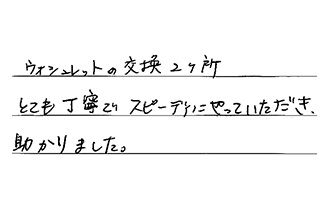 ウォシュレットの交換2ヶ所
とても丁寧でスピーディにやっていただき、
助かりました。